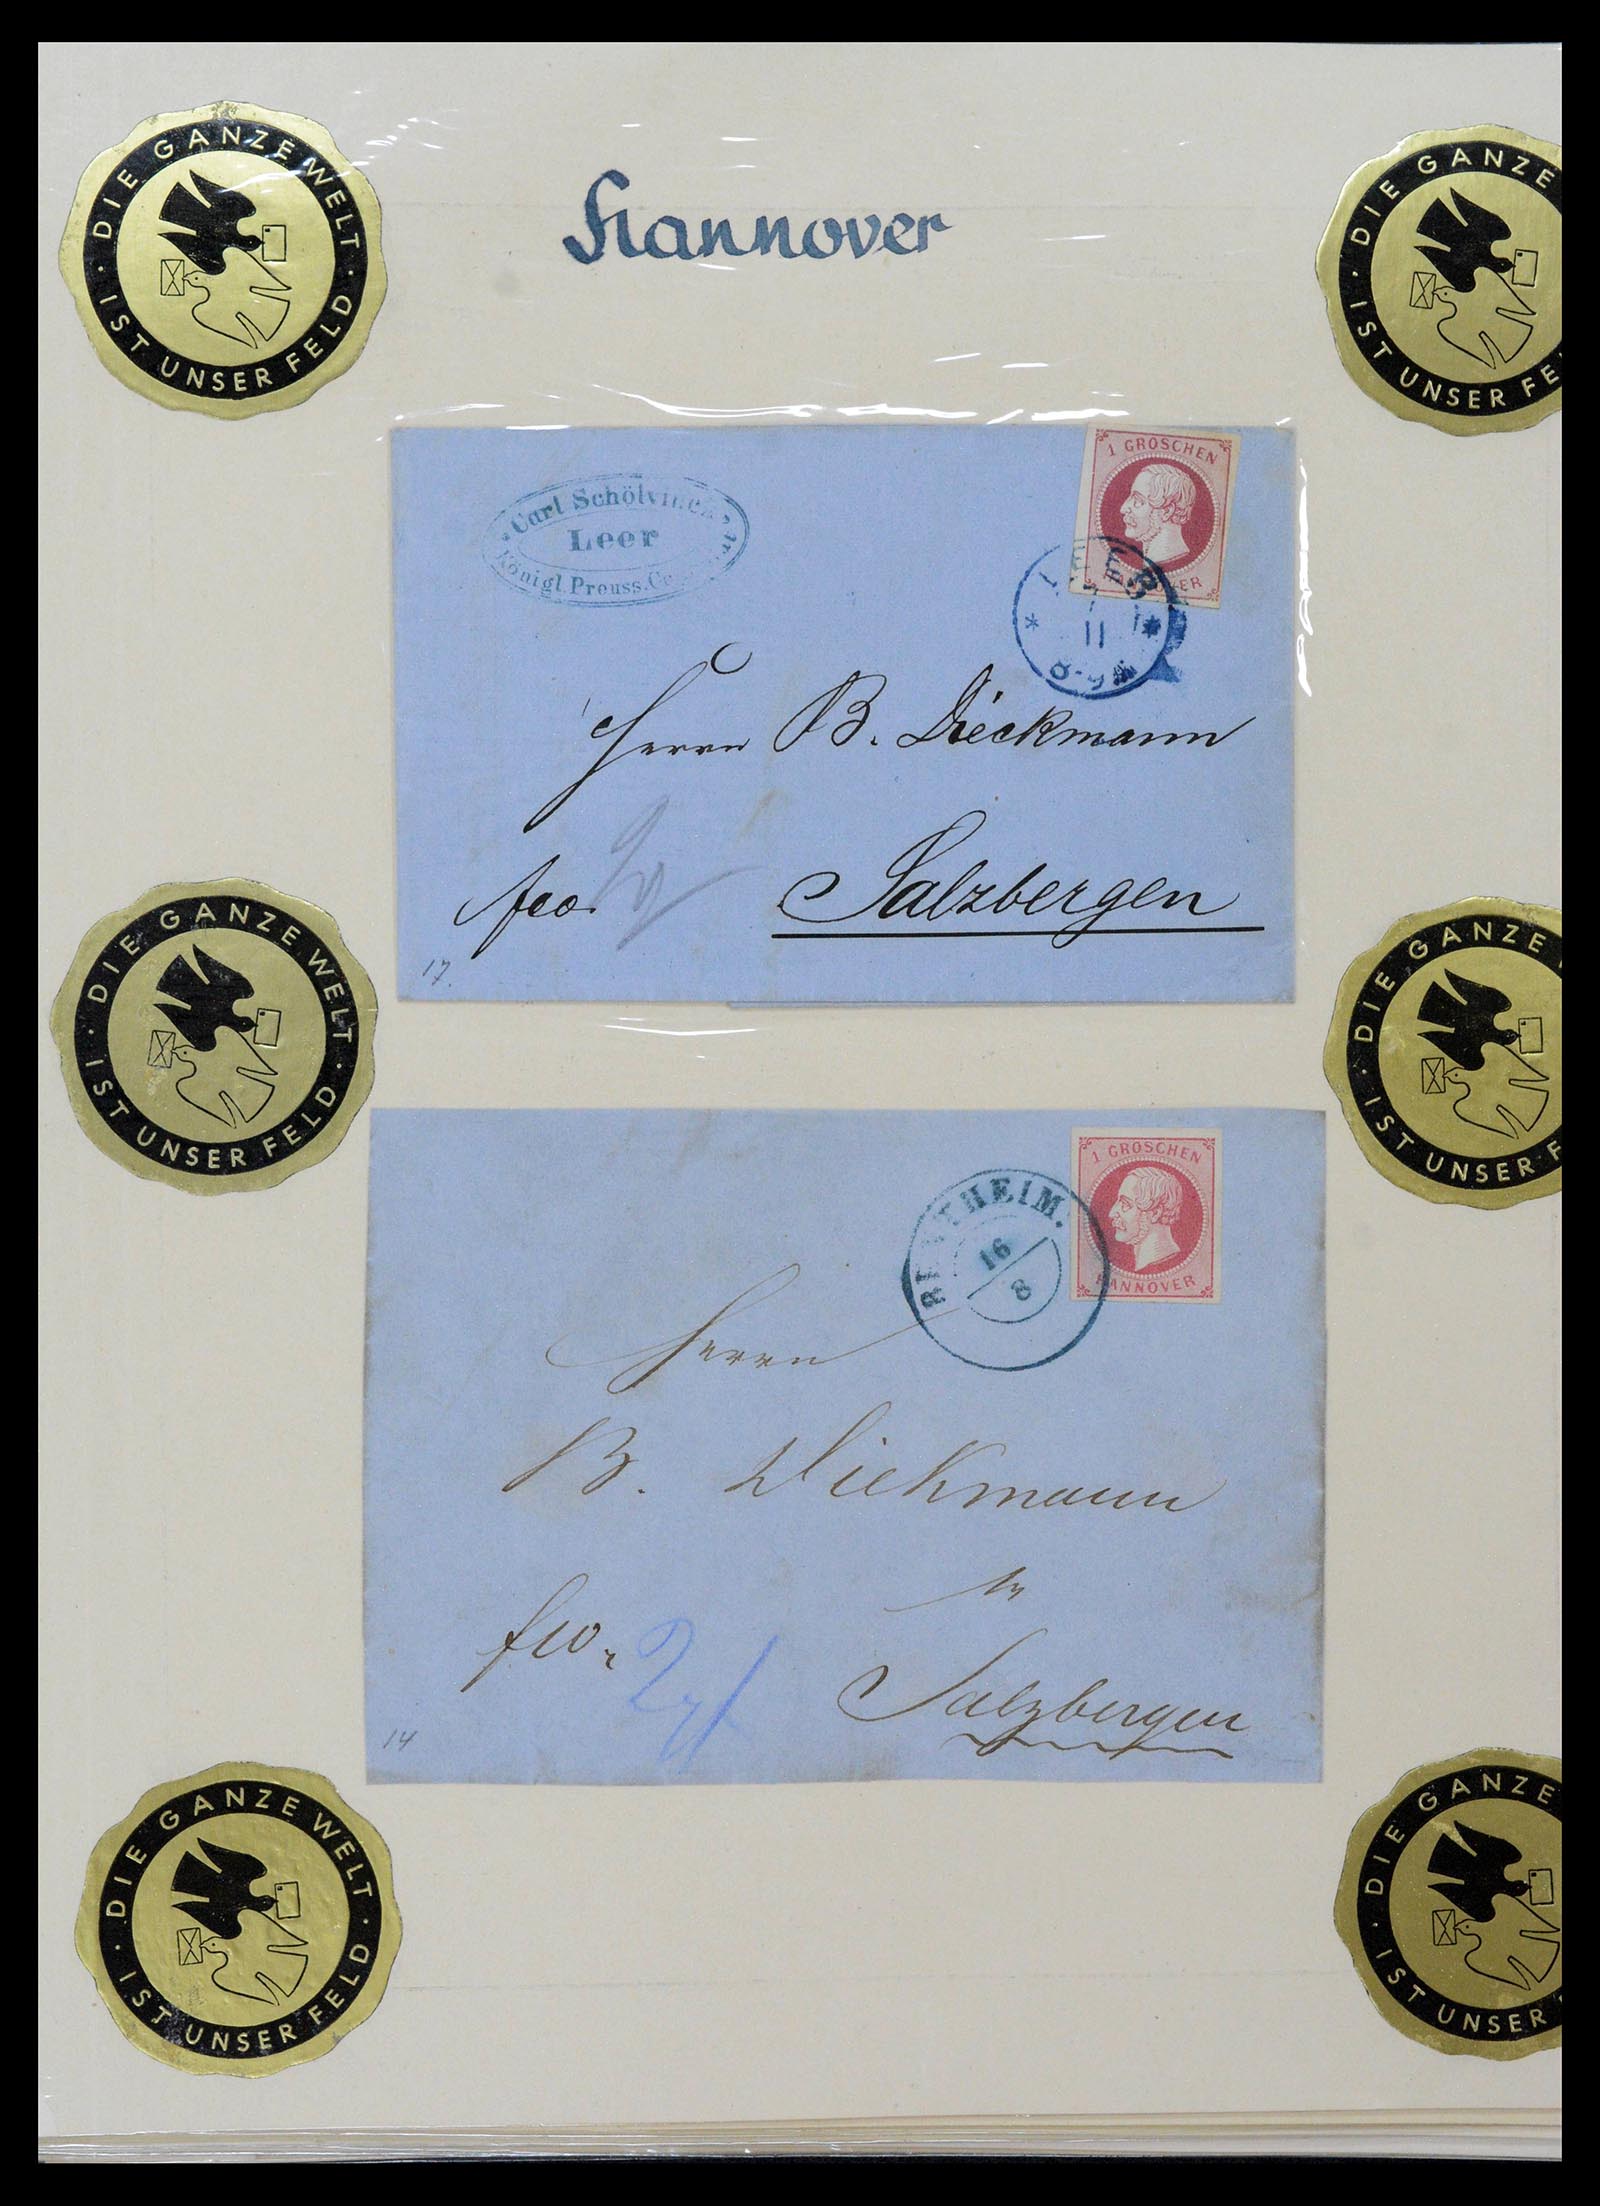 Hannover
DIE GANZE WELT · IST UNSER FELD ·
DIE GANZE
IST UNSER FE
Carl Schölvinck
Leer
Königl. Preuss.
1 GROSCHEN
LEER
11
8-9
Herrn B. Dieckmann
fco.
Salzbergen
17.
DIE GANZE WELT · IST UNSER FELD ·
DIE GANZE
IST UNSER F
1 GROSCHEN
HANNOVER
BENTHEIM.
16
8
Herrn
B. Dieckmann
in
fco.
Salzbergen
14
DIE GANZE WELT · IST UNSER FELD ·
DIE GANZE
IST UNSER